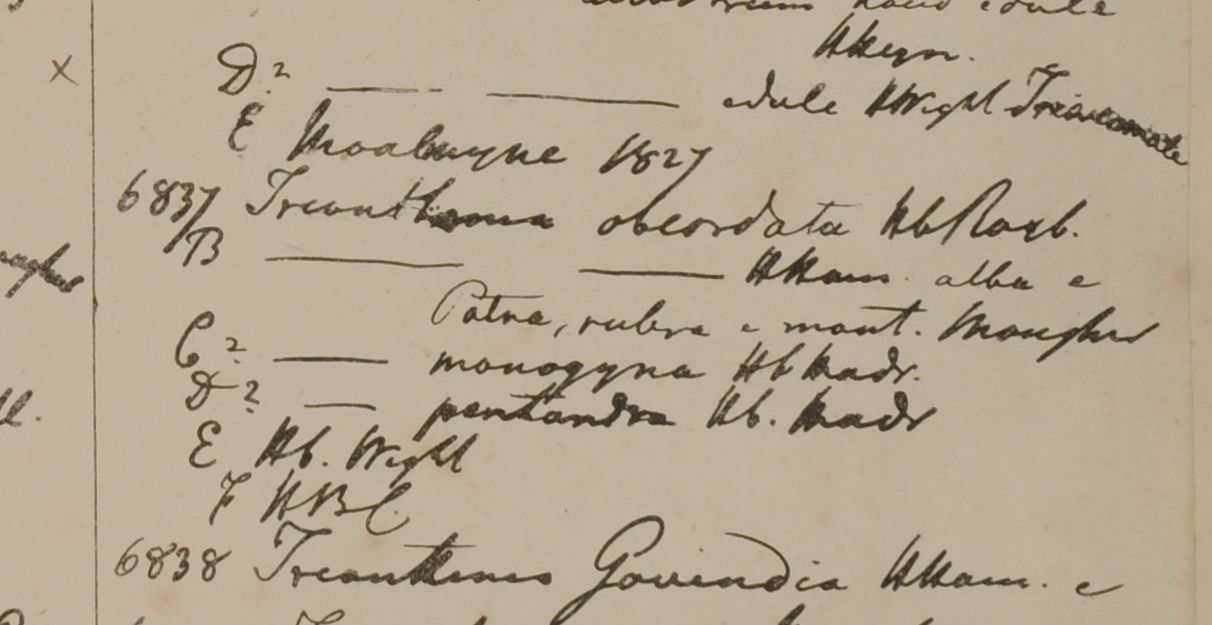 haud edule
HHeyn.
x D? —— —— edule HWight
E Moalmyne 1827
6837 Trianthema obcordata Hb Roxb.
B —— —— HHam. alba e
Patna, rubra e mont. Monghir
C? —— monogyna Hb Madr.
D? —— pentandra Hb. Madr
E Hb. Wight
F HBC.
6838 Trianthema Govindia HHam. e